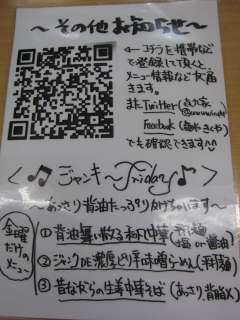 〜その他お知らせ〜
← コチラを携帯など
で登録して頂くと、
メニュー情報などが届
きます。
また Twitter
Facebook
でも確認できます^^
〈♫ ジャンキ〜Friday♪〉
〜あっさり背油たっぷりかけちゃいます〜
金曜だけのメニュー
① 背油舞い散る和風中華 (平打麺 塩 or 醤油)
② ジャンクDE濃厚ピリ辛味噌らーめん (平打麺)
③ 昔ながらの生姜中華そば (あっさり、背脂入)